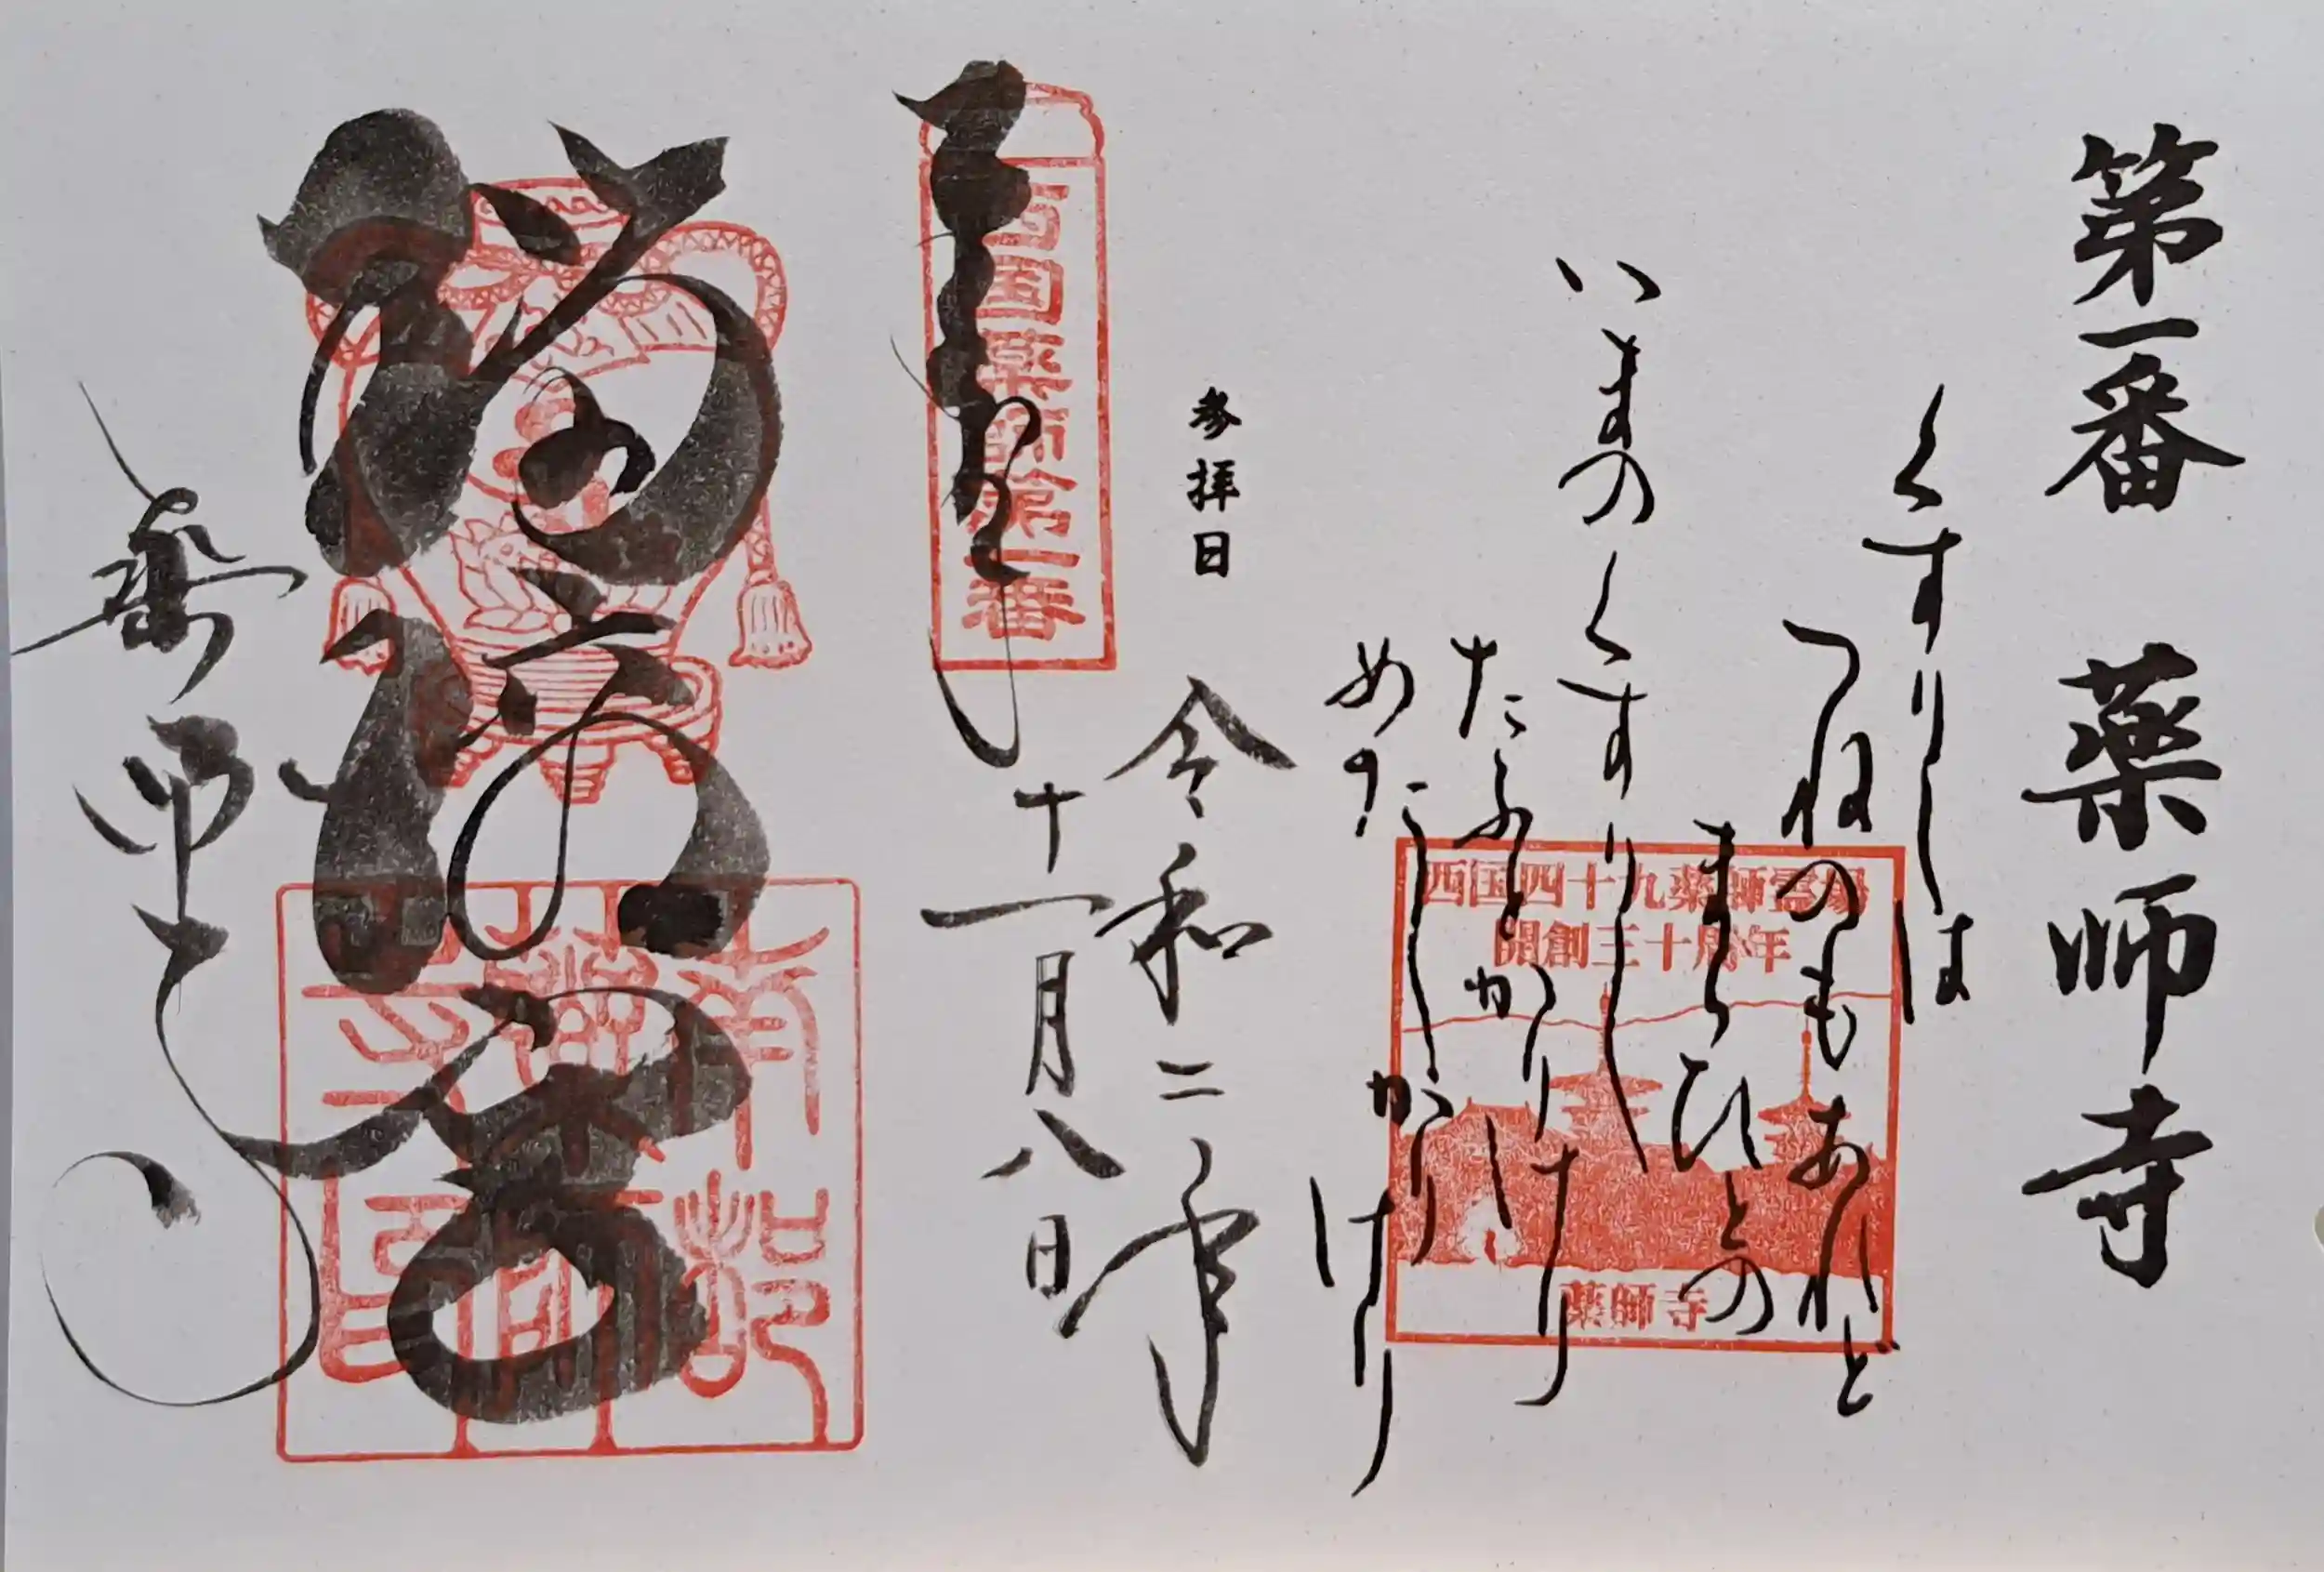 第一番 薬師寺
くすりしは
つねのもあれど
まらひとの
いまのくすりし
たふとかりけり
めだしかりけり
西国四十九薬師霊場
開創三十周年
薬師寺
参拝日
令和二年
十一月八日
西国薬師第一番
奉拝
瑠璃
薬師寺